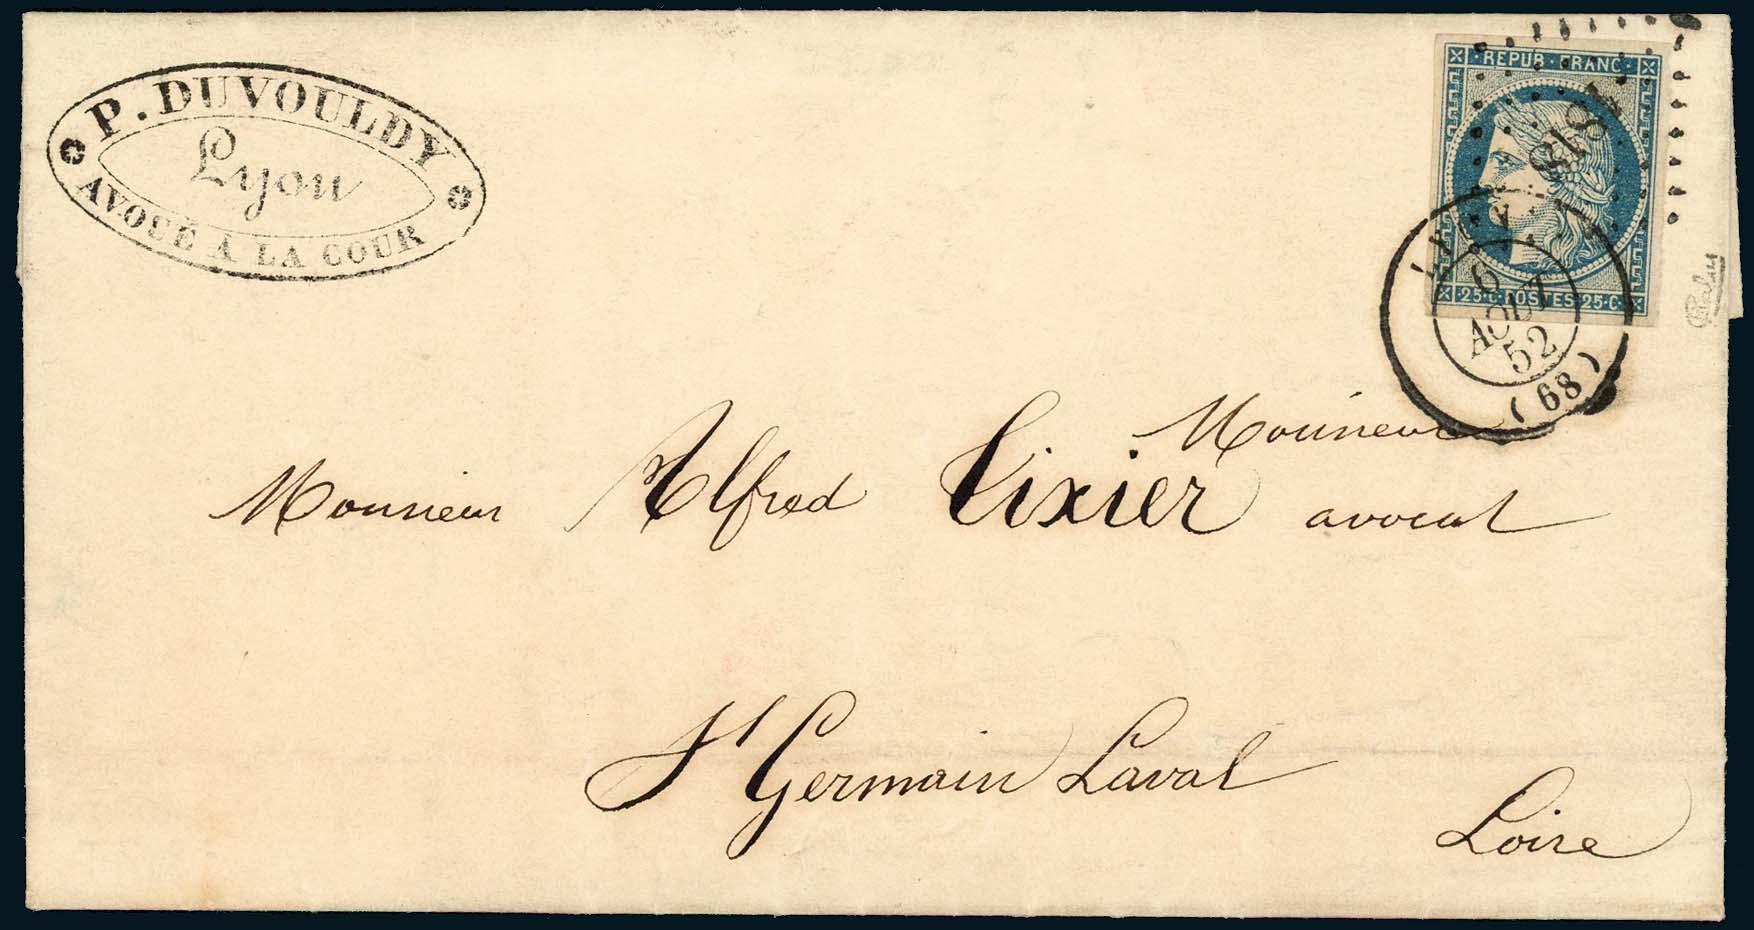 P. DUVOULDY
Lyon
AVOUÉ À LA COUR
REPUB·FRANC·
1818
25·C·POSTES·25·C·
LYON
6
AOUT
52
(68)
Monsieur
Monsieur Alfred Tixier avocat
St Germain Laval
Loire